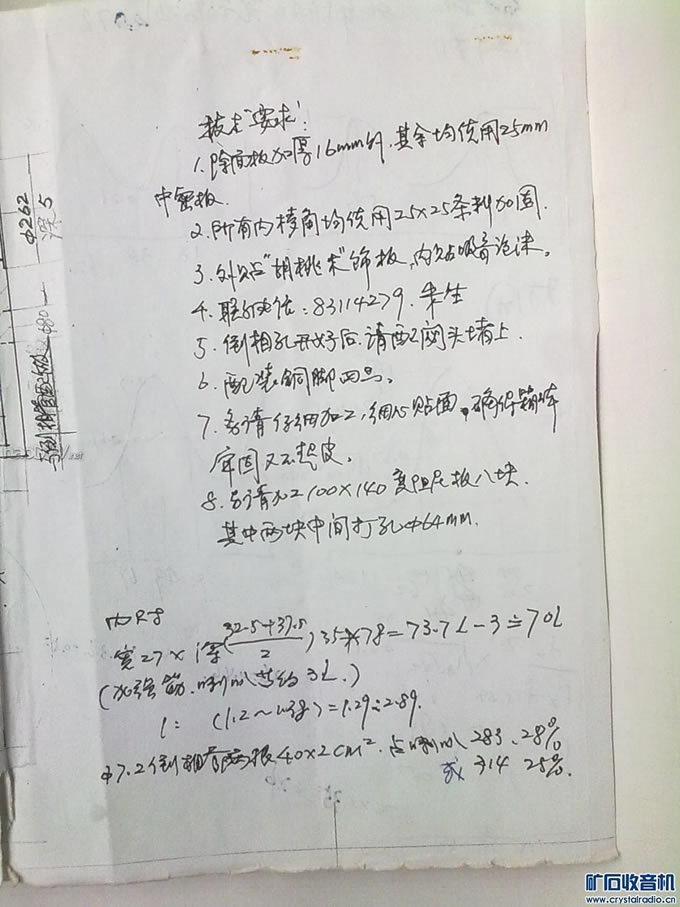 技术要求:
1. 除面板加厚16mm外,其余均使用25mm
中密板.
2. 所有内棱角均使用25×25条料加固.
3. 外贴"胡桃木"饰板,内贴吸音泡沫。
4. 联系电话:83114279. 朱生
5. 倒相孔开好后.请配2网头堵上.
6. 配装铜脚四只。
7. 务请仔细加工,细心贴面,确保箱体
牢固又不起皮。
8. 另请加工100×140 高阻尼板八块.
其中两块中间打孔Φ64mm.
内尺寸
宽27×深(32.5+37.5/2)35×78=73.7L-3≒70L
(加强筋.喇叭共约3L.)
1: (1.2~
Φ7.2倒相管两根40×2cm². 占喇叭 283、28%
或 314 25%.
Φ262
深5
矿石收音机
www.crystalradio.cn